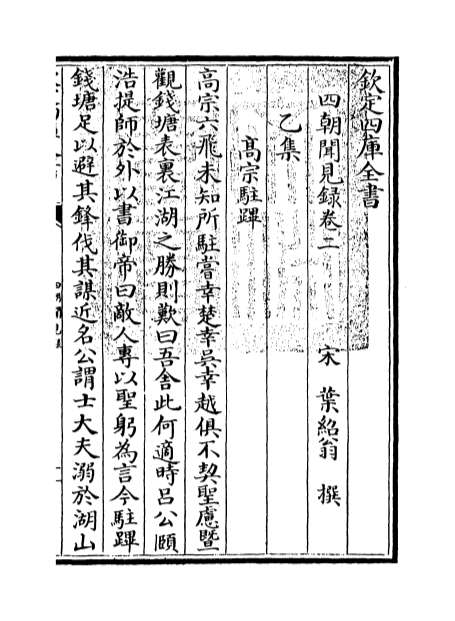 欽定四庫全書
四朝聞見録卷二　宋　葉紹翁　撰
乙集
高宗駐蹕
高宗六飛未知所駐嘗幸楚幸吳幸越俱不契聖慮暨
觀錢塘表裏江湖之勝則歎曰吾舍此何適時吕公頤
浩提師於外以書御帝曰敵人專以聖躬為言今駐蹕
錢塘足以避其鋒伐其謀近名公謂士大夫溺於湖山